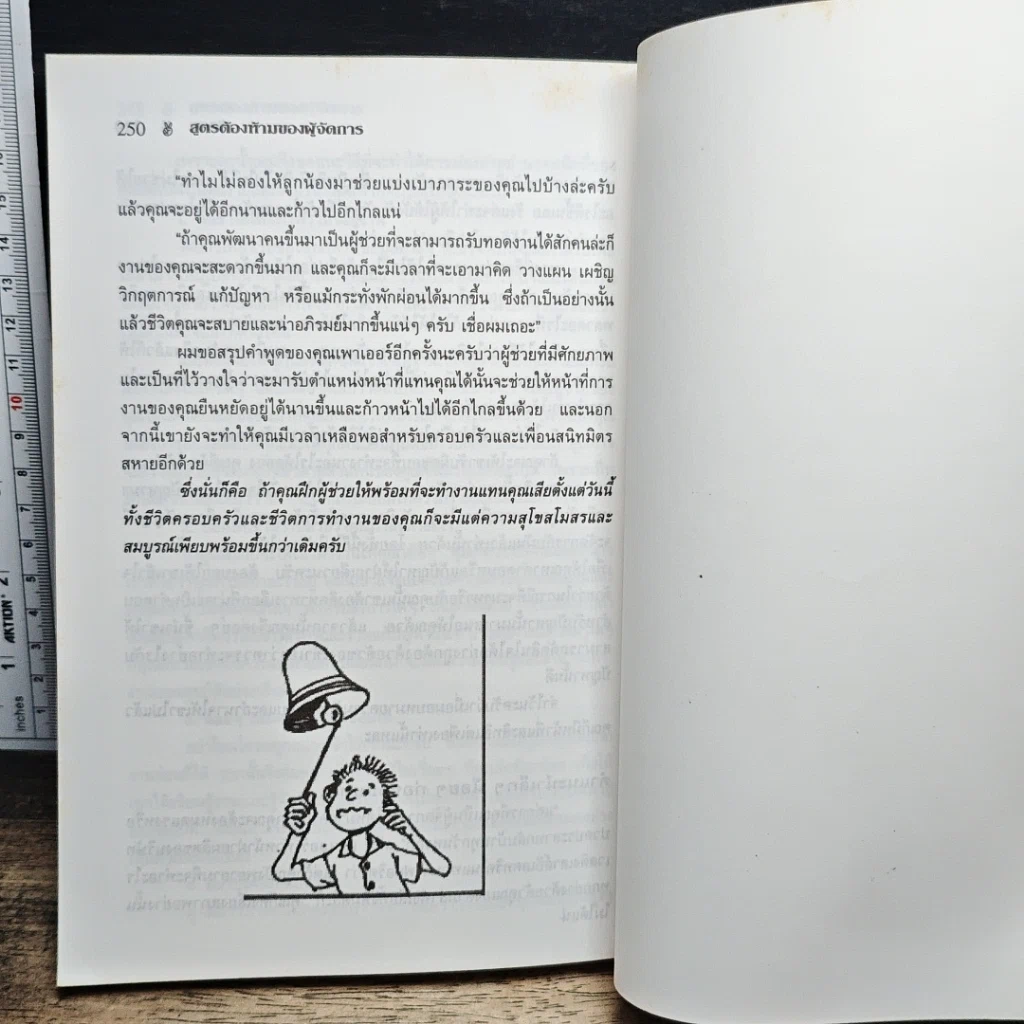 250 สูตรต้องห้ามของผู้จัดการ
"ทำไมไม่ลองให้ลูกน้องมาช่วยแบ่งเบาภาระของคุณไปบ้างล่ะครับ
แล้วคุณจะอยู่ได้อีกนานและก้าวไปอีกไกลแน่
"ถ้าคุณพัฒนาคนขึ้นมาเป็นผู้ช่วยที่จะสามารถรับทอดงานได้สักคนล่ะก็
งานของคุณจะสะดวกขึ้นมาก และคุณก็จะมีเวลาที่จะเอามาคิด วางแผน เผชิญ
วิกฤตการณ์ แก้ปัญหา หรือแม้กระทั่งพักผ่อนได้มากขึ้น ซึ่งถ้าเป็นอย่างนั้น
แล้วชีวิตคุณจะสบายและน่าอภิรมย์มากขึ้นแน่ๆ ครับ เชื่อผมเถอะ"
ผมขอสรุปคำพูดของคุณเพาเออร์อีกครั้งนะครับว่าผู้ช่วยที่มีศักยภาพ
และเป็นที่ไว้วางใจว่าจะมารับตำแหน่งหน้าที่แทนคุณได้นั้นจะช่วยให้หน้าที่การ
งานของคุณยืนหยัดอยู่ได้นานขึ้นและก้าวหน้าไปได้อีกไกลขึ้นด้วย และนอก
จากนี้เขายังจะทำให้คุณมีเวลาเหลือพอสำหรับครอบครัวและเพื่อนสนิทมิตร
สหายอีกด้วย
ซึ่งนั่นก็คือ ถ้าคุณฝึกผู้ช่วยให้พร้อมที่จะทำงานแทนคุณเสียตั้งแต่วันนี้
ทั้งชีวิตครอบครัวและชีวิตการทำงานของคุณก็จะมีแต่ความสุโขสโมสรและ
สมบูรณ์เพียบพร้อมขึ้นกว่าเดิมครับ
15
14
13
12
11
10
9
8
7
6
5
4
3
2
1
inches
1
2
AKTION